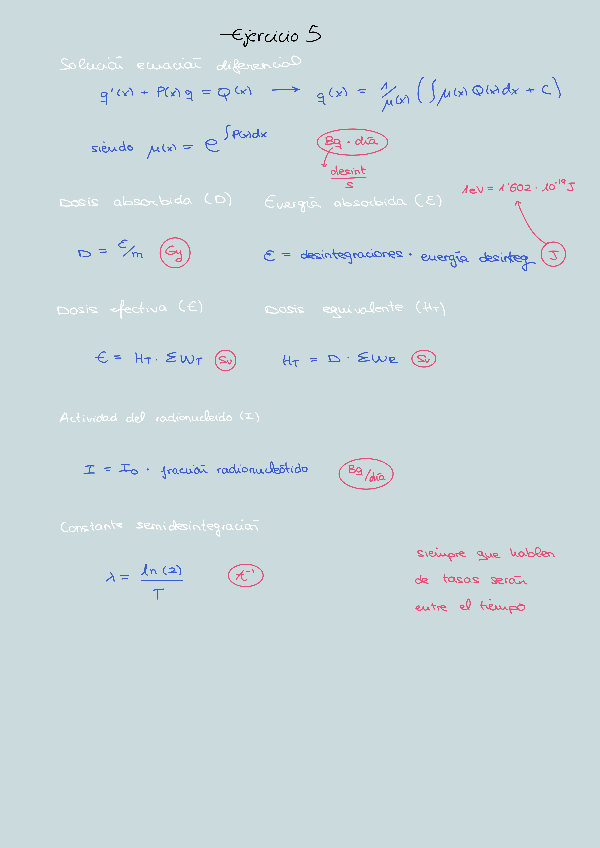 Ejercicio 5
Solución ecuación diferencial
q'(x) + P(x) q = Q(x) → q(x) = 1/μ(x) (∫ μ(x) Q(x) dx + C)
siendo μ(x) = e^∫P(x)dx
Bq · día
desint/s
1eV = 1'602 · 10⁻¹⁹ J
Dosis absorbida (D)
Energía absorbida (E)
D = ε/m Gy
ε = desintegraciones · energía desinteg J
Dosis efectiva (E)
Dosis equivalente (HT)
E = HT · ΣWT Sv
HT = D · ΣWR Sv
Actividad del radionucleido (I)
I = I₀ · fracción radionucleótido Bq/día
Constante semidesintegración
λ = ln(2)/T t⁻¹
siempre que hablen
de tasas serán
entre el tiempo